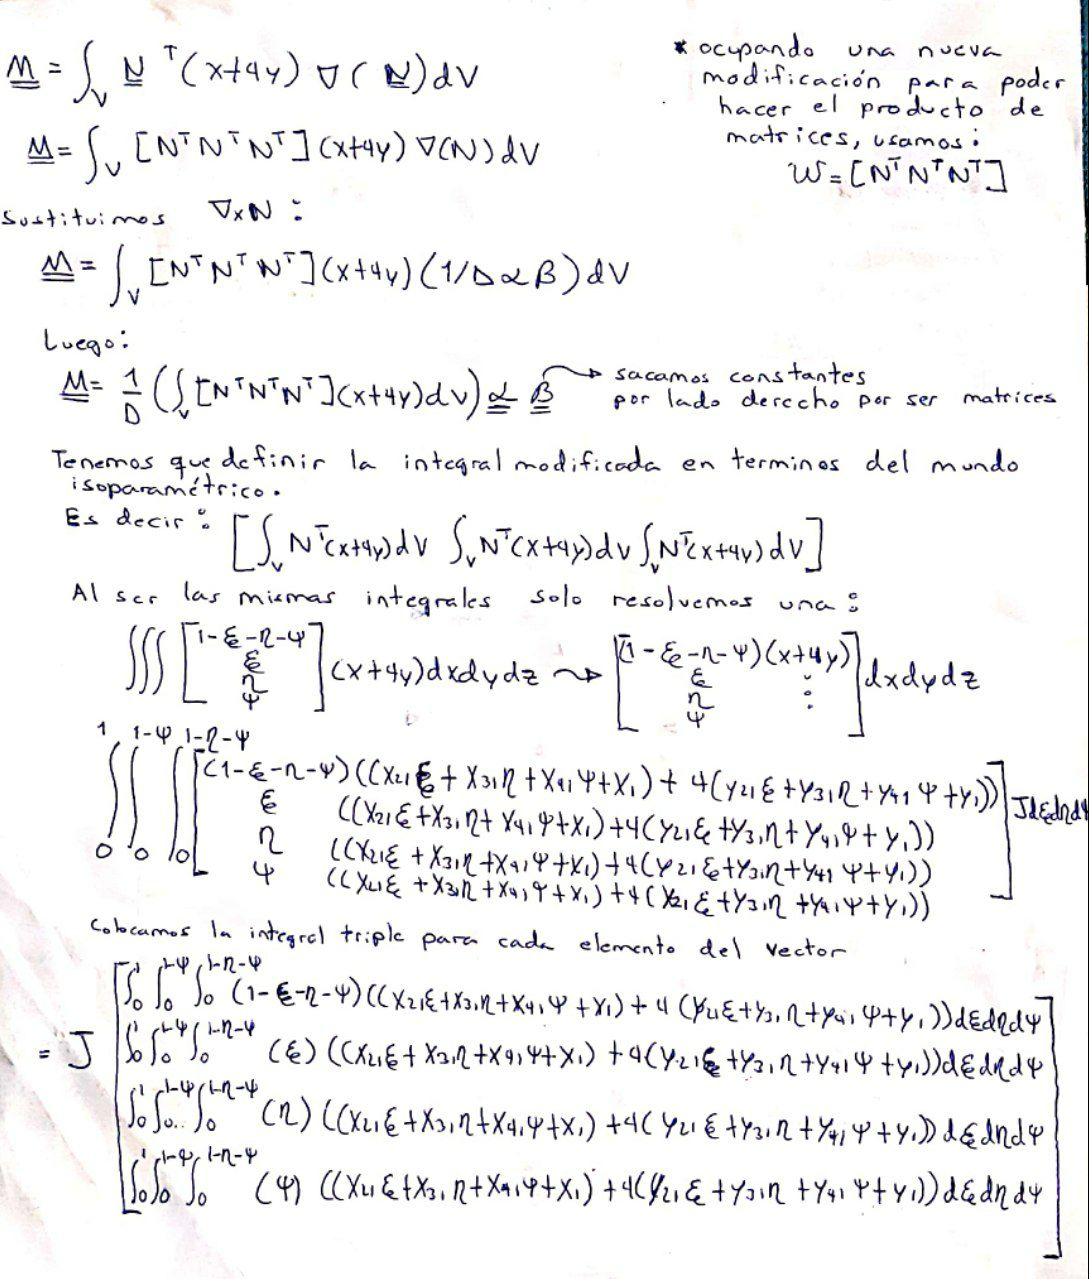 M = ∫_V N^T (x+4y) ∇(N) dV
* ocupando una nueva
modificación para poder
hacer el producto de
matrices, usamos:
W = [N^T N^T N^T]
M = ∫_V [N^T N^T N^T] (x+4y) ∇(N) dV
Sustituimos ∇xN :
M = ∫_V [N^T N^T N^T] (x+4y) (1/D α β) dV
Luego:
M = 1/D (∫_V [N^T N^T N^T] (x+4y) dV) α β → sacamos constantes
por lado derecho por ser matrices
Tenemos que definir la integral modificada en terminos del mundo
isoparamétrico.
Es decir: [∫_V N^T(x+4y)dV ∫_V N^T(x+4y)dV ∫_V N^T(x+4y)dV]
Al ser las mismas integrales solo resolvemos una:
∭ [1-ξ-η-ψ ξ η ψ] (x+4y)dxdydz ⤳ [(1-ξ-η-ψ)(x+4y) ξ η ψ ⋮] dxdydz
∫_0^1 ∫_0^{1-ψ} ∫_0^{1-η-ψ} [(1-ξ-η-ψ)((x21ξ + x31η + x41ψ + x1) + 4(y21ξ + y31η + y41ψ + y1))
ξ ((x21ξ + x31η + x41ψ + x1) + 4(y21ξ + y31η + y41ψ + y1))
η ((x21ξ + x31η + x41ψ + x1) + 4(y21ξ + y31η + y41ψ + y1))
ψ ((x21ξ + x31η + x41ψ + x1) + 4(y21ξ + y31η + y41ψ + y1))] Jdξdηdψ
Colocamos la integral triple para cada elemento del vector
= J [∫_0^1 ∫_0^{1-ψ} ∫_0^{1-η-ψ} (1-ξ-η-ψ)((x21ξ + x31η + x41ψ + x1) + 4(y21ξ + y31η + y41ψ + y1))dξdηdψ
∫_0^1 ∫_0^{1-ψ} ∫_0^{1-η-ψ} (ξ) ((x21ξ + x31η + x41ψ + x1) + 4(y21ξ + y31η + y41ψ + y1))dξdηdψ
∫_0^1 ∫_0^{1-ψ} ∫_0^{1-η-ψ} (η) ((x21ξ + x31η + x41ψ + x1) + 4(y21ξ + y31η + y41ψ + y1))dξdηdψ
∫_0^1 ∫_0^{1-ψ} ∫_0^{1-η-ψ} (ψ) ((x21ξ + x31η + x41ψ + x1) + 4(y21ξ + y31η + y41ψ + y1))dξdηdψ]